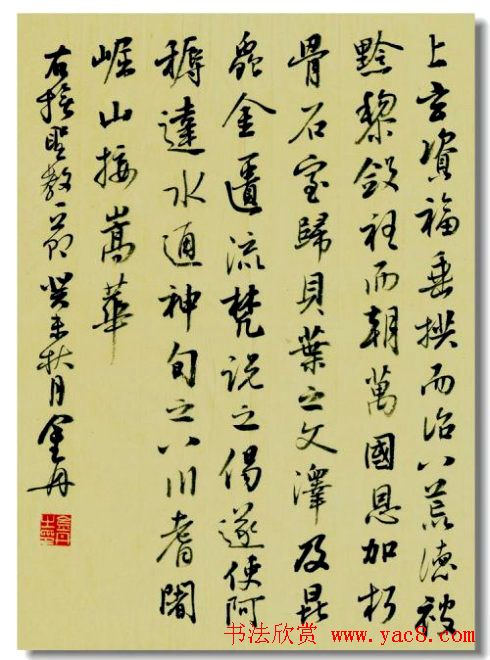 上玄資福垂拱而治八荒德被
黔黎斂衽而朝萬國恩加朽
骨石室歸貝葉之文澤及昆
蟲金匱流梵說之偈遂使阿
耨達水通神甸之八川耆闍
崛山接嵩華
右聖教一節癸未秋月金丹
书法欣赏 www.yac8.com